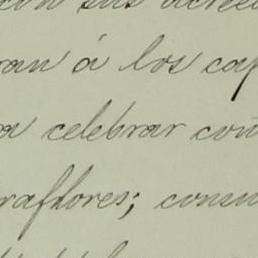 con sus acree
ran á los cap
a celebrar con
raflores; consu